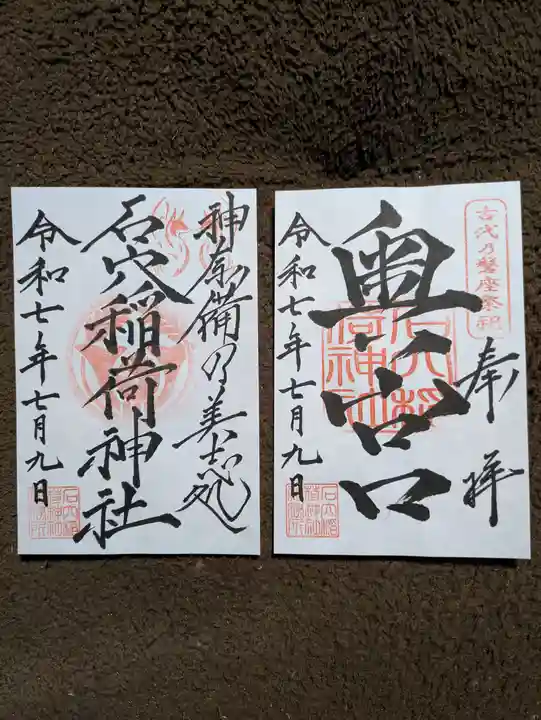 石穴稲荷神社
令和七年七月九日
石穴稲
荷神社
古代乃磐座祭祀
奉拝
奥宮
石穴稲
荷神社
令和七年七月九日
石穴稲
荷神社